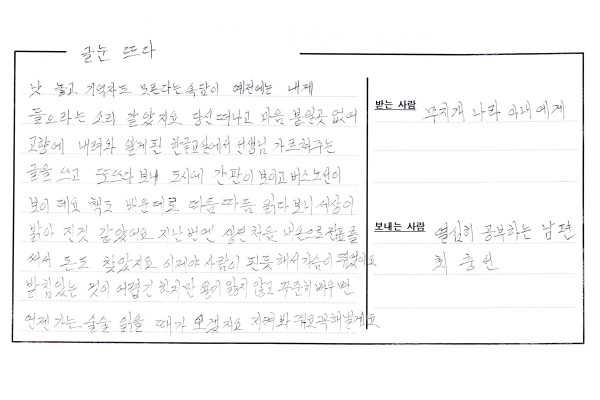 글눈 뜨다
낫 놓고 기역자도 모른다는 속담이 예전에는 내게
들으라는 소리 같았지요 당신 떠나고 마음 붙일곳 없어
고향에 내려와 알게된 한글교실에서 선생님 가르쳐주는
글을 쓰고 또 쓰다 보니 도시에 간판이 보이고 버스노선이
보이데요 책도 배운데로 띄믐띄믐 읽다보니 세상이
밝아 진것 같았어요 지난번엔 살면 처음 내손으로 전표를
써서 돈도 찾았지요 이제야 사람이 된듯해서 가슴이
받침있는 것이 어렵긴 하지만 용기 잃지 않고 꾸준히 배우면
언젠가는 술술 읽을 때가 오겠지요 지켜봐 줘요 꼭해낼게요
받는 사람
무지개 나라 아래에게
보내는 사람
열심히 공부하는 남편
최충선